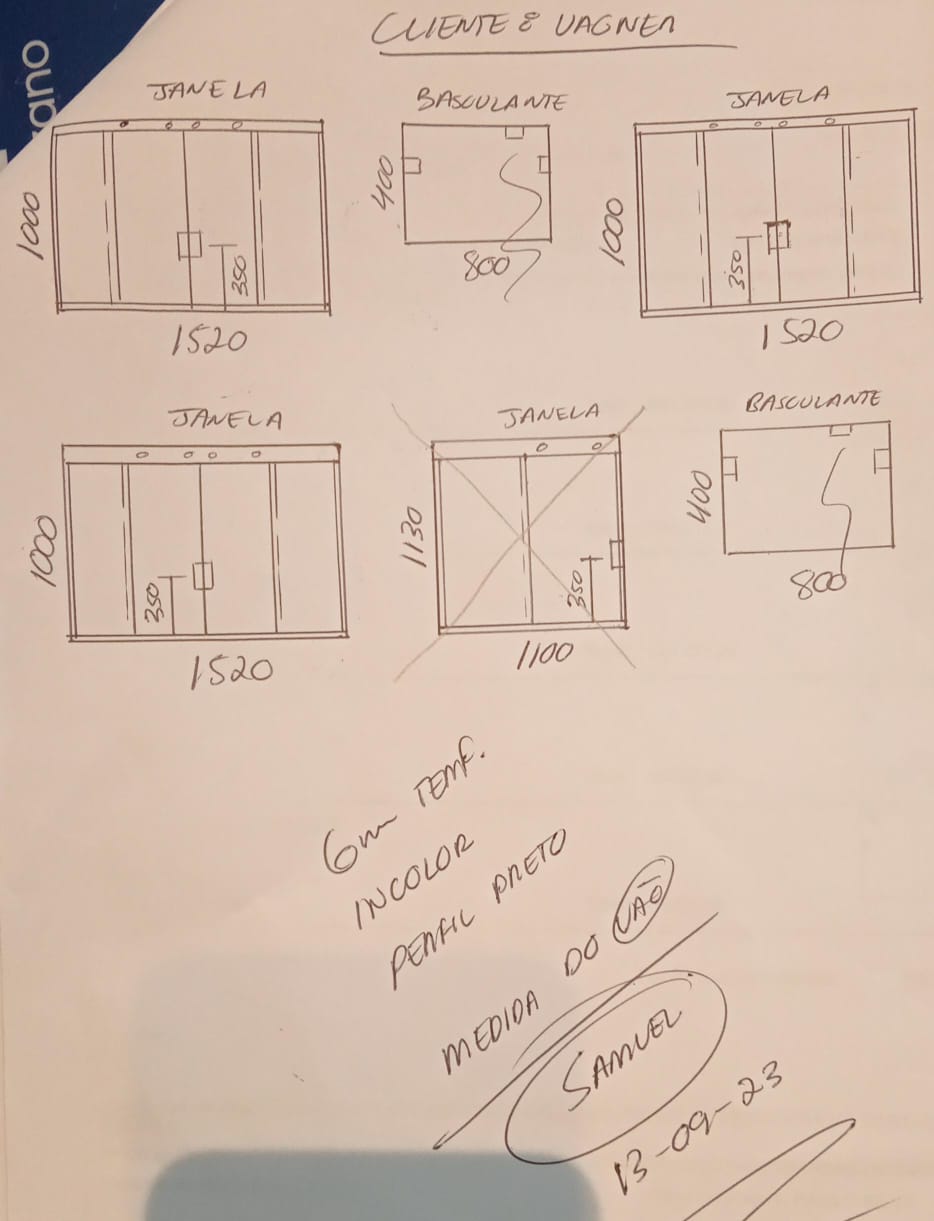 CLIENTE: VAGNER
ano
JANELA
1000
350
1520
BASCULANTE
400
800
JANELA
1000
350
1520
JANELA
1000
350
1520
JANELA
1130
350
1100
BASCULANTE
400
800
6mm TEMP.
INCOLOR
PERFIL PRETO
MEDIDA DO VÃO
SAMUEL
13-09-23